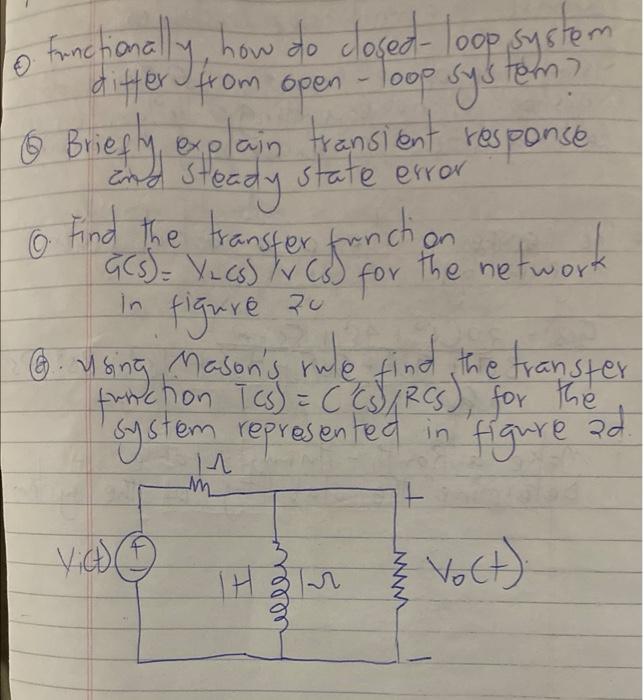 Functionally, how do closed-loop system
differ from open-loop system?
ⓑ Briefly, explain transient response
and steady state error
ⓒ. Find the transfer function
G(s) = VL(s) /V(s) for the network
in figure 2c
ⓓ. Using Mason's rule find the transfer
function T(s) = C(s)/R(s), for the
system represented in figure 2d.
1Ω
+
Vi(t) +
1H 1Ω Vo(t)
−